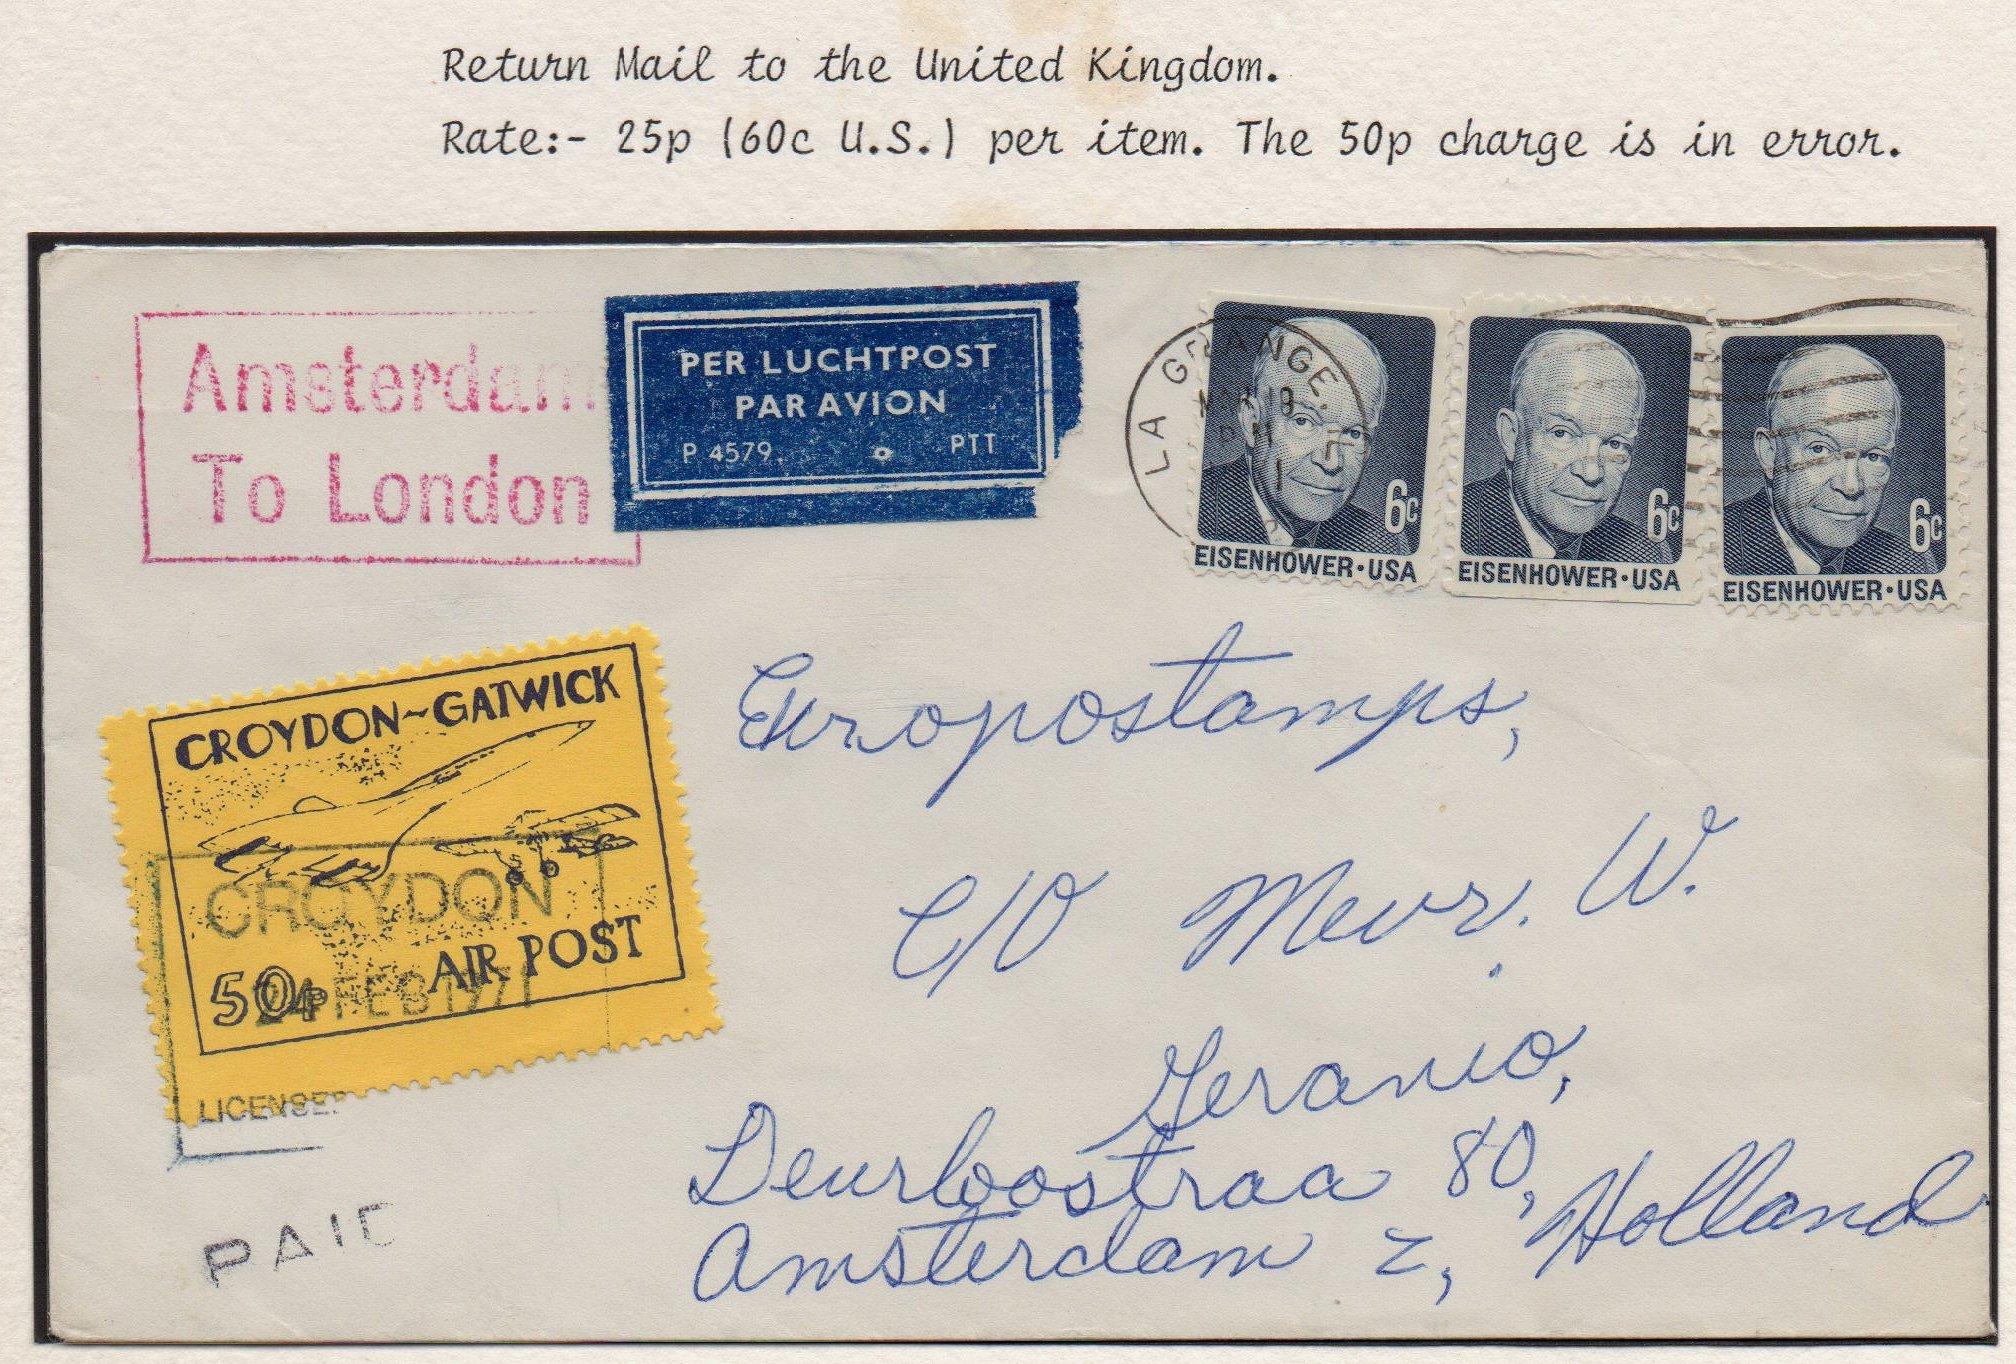 Return Mail to the United Kingdom.
Rate:- 25p (60c U.S.) per item. The 50p charge is in error.
Amsterdam
To London
PER LUCHTPOST
PAR AVION
P 4579. PTT
LA GRANGE
EISENHOWER·USA 6c
EISENHOWER·USA 6c
EISENHOWER·USA 6c
CROYDON~GATWICK
CROYDON
AIR POST
50p
24 FEB 1971
PAID
Europostamps,
c/o Mevr. W.
Geranio,
Deurloostraa 80,
Amsterdam Z, Holland